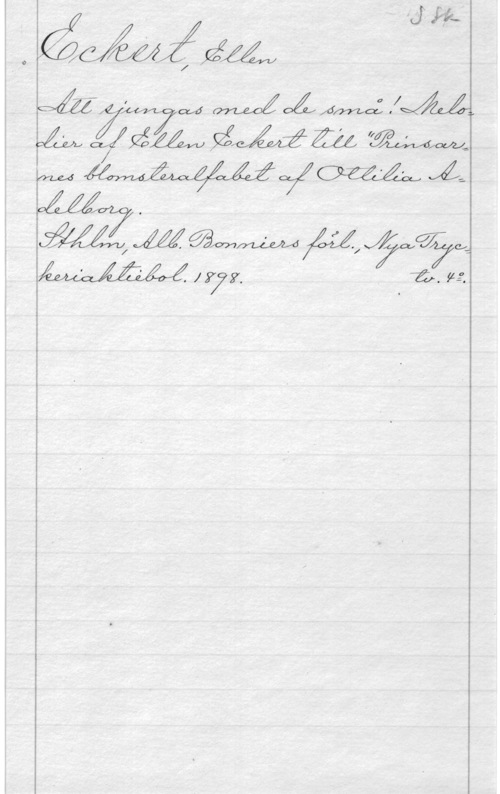 S Sk
Eckert, Ellen
Att sjungas med de små! Melo=
dier af Ellen Eckert till "Prinsar=
nes blomsteralfabet af Ottilia A=
delborg.
Sthlm, Alb. Bonniers förl., Nya Tryc=
keriaktiebol. 1898. tv. 4º.